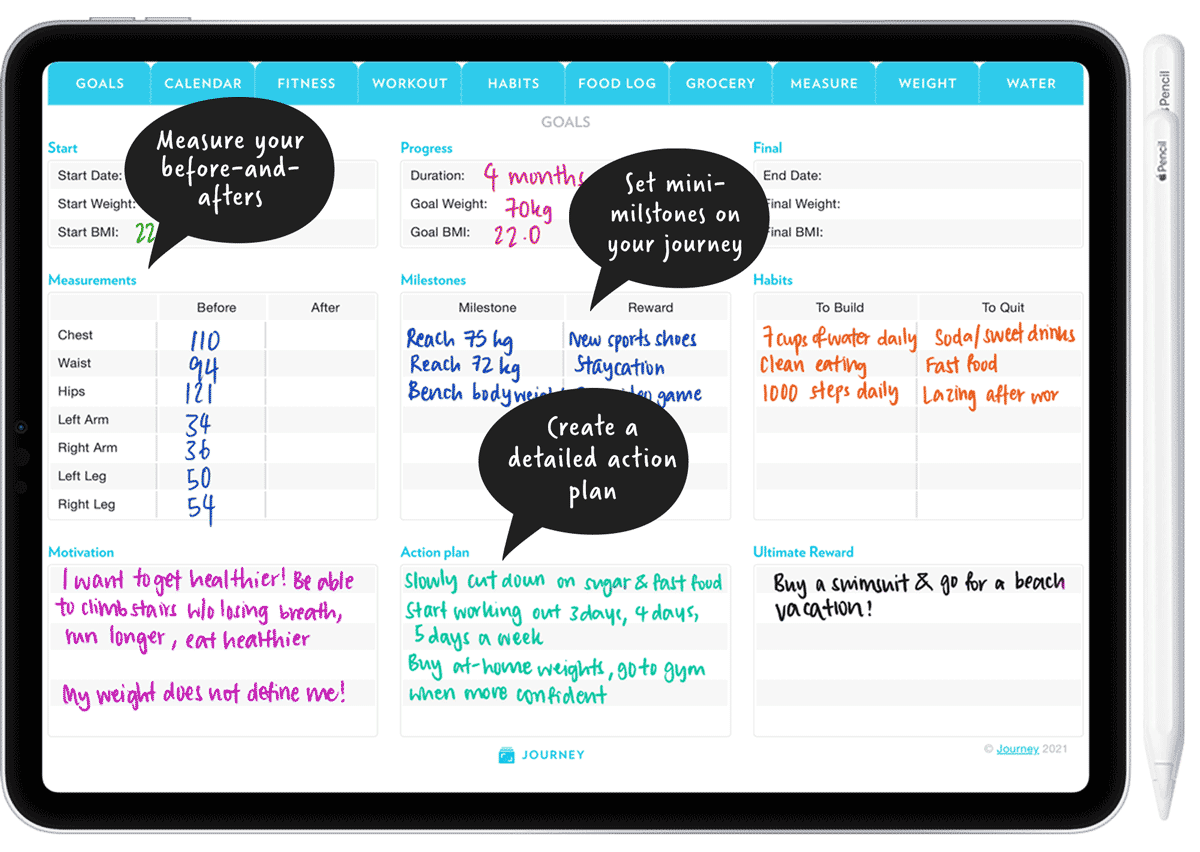 GOALS CALENDAR FITNESS WORKOUT HABITS FOOD LOG GROCERY MEASURE WEIGHT WATER
GOALS
Start
Start Date:
Start Weight:
Start BMI: 22
Measure your
before-and-
afters
Progress
Duration: 4 months
Goal Weight: 70kg
Goal BMI: 22.0
Set mini-
milstones on
your journey
Final
End Date:
Final Weight:
Final BMI:
Measurements
Before After
Chest 110
Waist 94
Hips 121
Left Arm 34
Right Arm 36
Left Leg 50
Right Leg 54
Milestones
Milestone Reward
Reach 75 kg New sports shoes
Reach 72 kg Staycation
Bench bodyweight game
Create a
detailed action
plan
Habits
To Build To Quit
7 cups of water daily Soda/sweet drinks
Clean eating Fast food
1000 steps daily Lazing after wor
Motivation
I want to get healthier! Be able
to climb stairs w/o losing breath,
run longer, eat healthier
My weight does not define me!
Action plan
Slowly cut down on sugar & fast food
Start working out 3 days, 4 days,
5 days a week
Buy at-home weights, go to gym
when more confident
Ultimate Reward
Buy a swimsuit & go for a beach
vacation!
JOURNEY
© Journey 2021
Pencil
Pencil